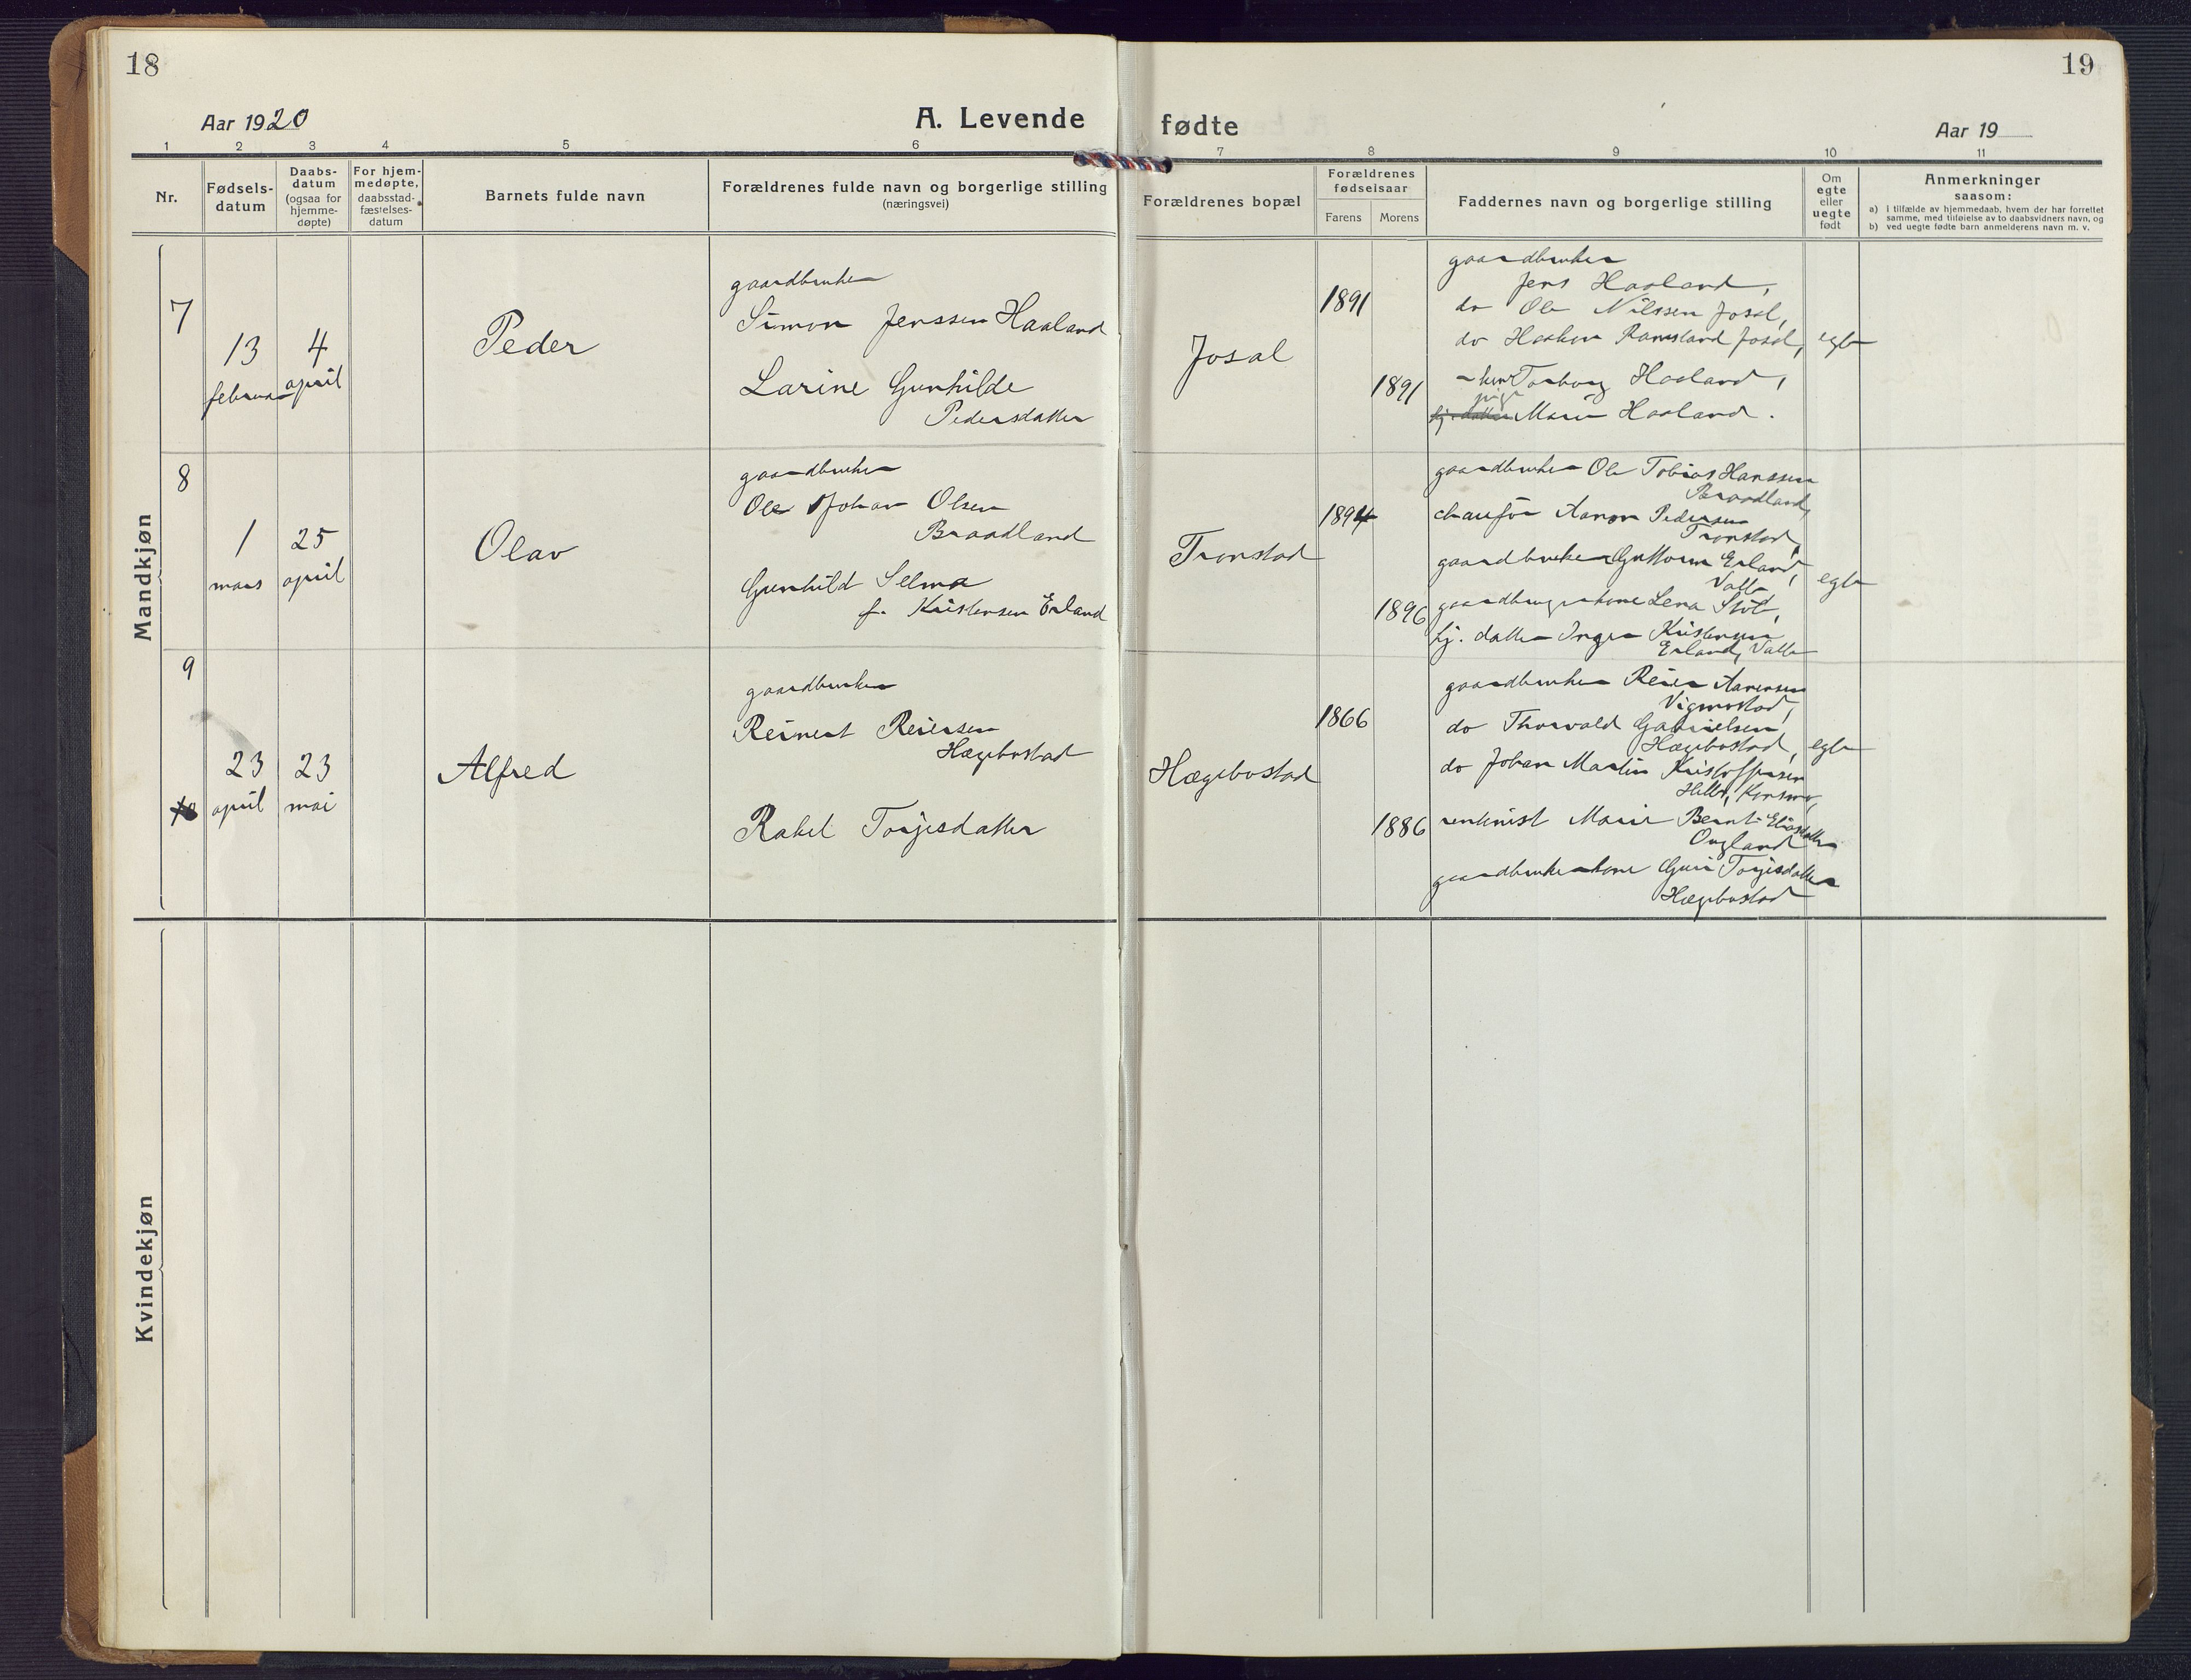 18
Aar 1920
A. Levende
1 2 3 4 5 6
Nr.
Fødsels-
datum
Daabs-
datum
(ogsaa for
hjemme-
døpte)
For hjem-
medøpte,
daabsstad-
fæstelses-
datum
Barnets fulde navn
Forældrenes fulde navn og borgerlige stilling
(næringsvei)
Mandkjøn
7
13
februar
4
april
Peder
gaardbruker
Simon Jenssen Haaland
Larine Gunhilde
Pedersdatter
8
1
mars
25
april
Olav
gaardbruker
Ole Johan Olsen
Braadland
Gunhild Selma
f. Kristensen Erland
9
10
23
april
23
mai
Alfred
gaardbruker
Reinert Reiersen
Hægebostad
Rakel Torjesdatter
Kvindekjøn
19
fødte
Aar 19
7 8 9 10 11
Forældrenes bopæl
Forældrenes
fødselsaar
Farens Morens
Faddernes navn og borgerlige stilling
Om
egte
eller
uegte
født
Anmerkninger
saasom:
a) I tilfælde av hjemmedaab, hvem der har forrettet
samme, med tilføielse av to daabsvidners navn, og
b) ved uegte fødte barn anmelderens navn m. v.
Josal
1891
1891
gaardbruker
Jens Haaland,
do Ole Nilssen Josal,
do Haakon Ramsland Josal,
Torborg Haaland,
pige
Marie Haaland.
egte
Tronstad
1894
1896
gaardbruker Ole Tobias Hanssen
Braadland,
chaufør Aanon Pedersen
Tronstad,
gaardbruker Guttorm Erland,
Valle
gaardbrugerkone Lena Støle,
hj. datter Inger Kristensen
Erland, Valle
egte
Hægebostad
1866
1886
gaardbruker Reier Aanensen
Vigmostad,
do Thorvald Gabrielsen
Hægebostad,
do Johan Martin Kristoffersen
Helle, Konsmo,
rentenist Marie Bernt-Eliasdatter
Ougland
gaardbrukerkone Guri Torjesdatter
Hægebostad
egte